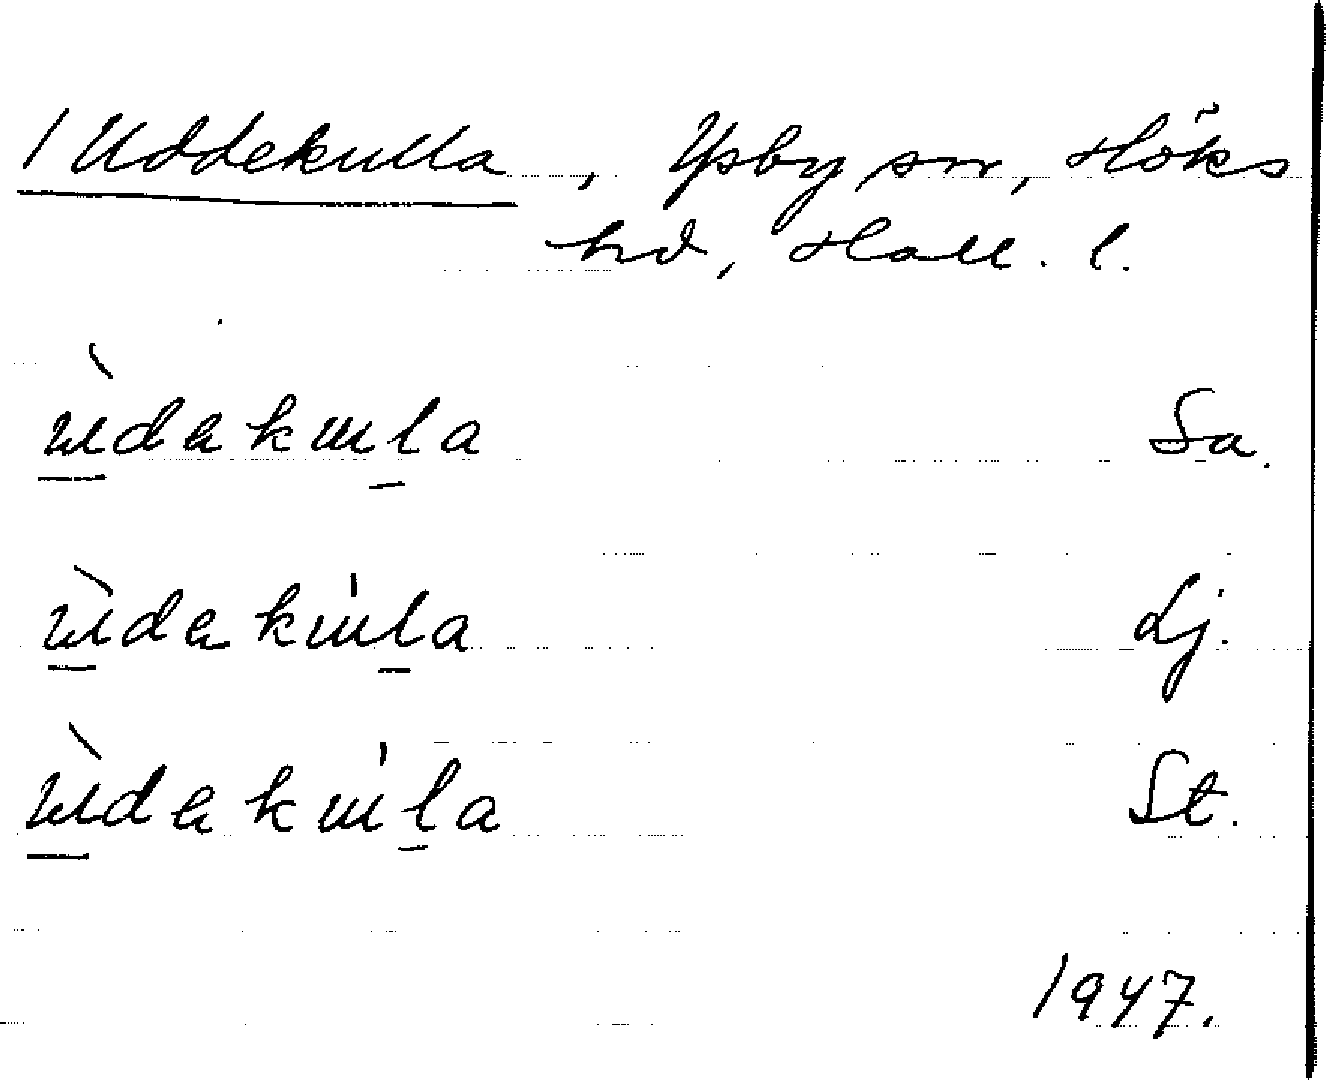 1 Uddekulla, Ysby sn, Höks
hd, Hall. l.
ùdakula Sa.
ùdakula Lj.
ùdakula St.
1947.